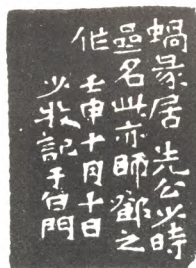 蝸篆居 先公少時
齋名此亦師鄧之
作 壬申十月十日
少牧記于白門